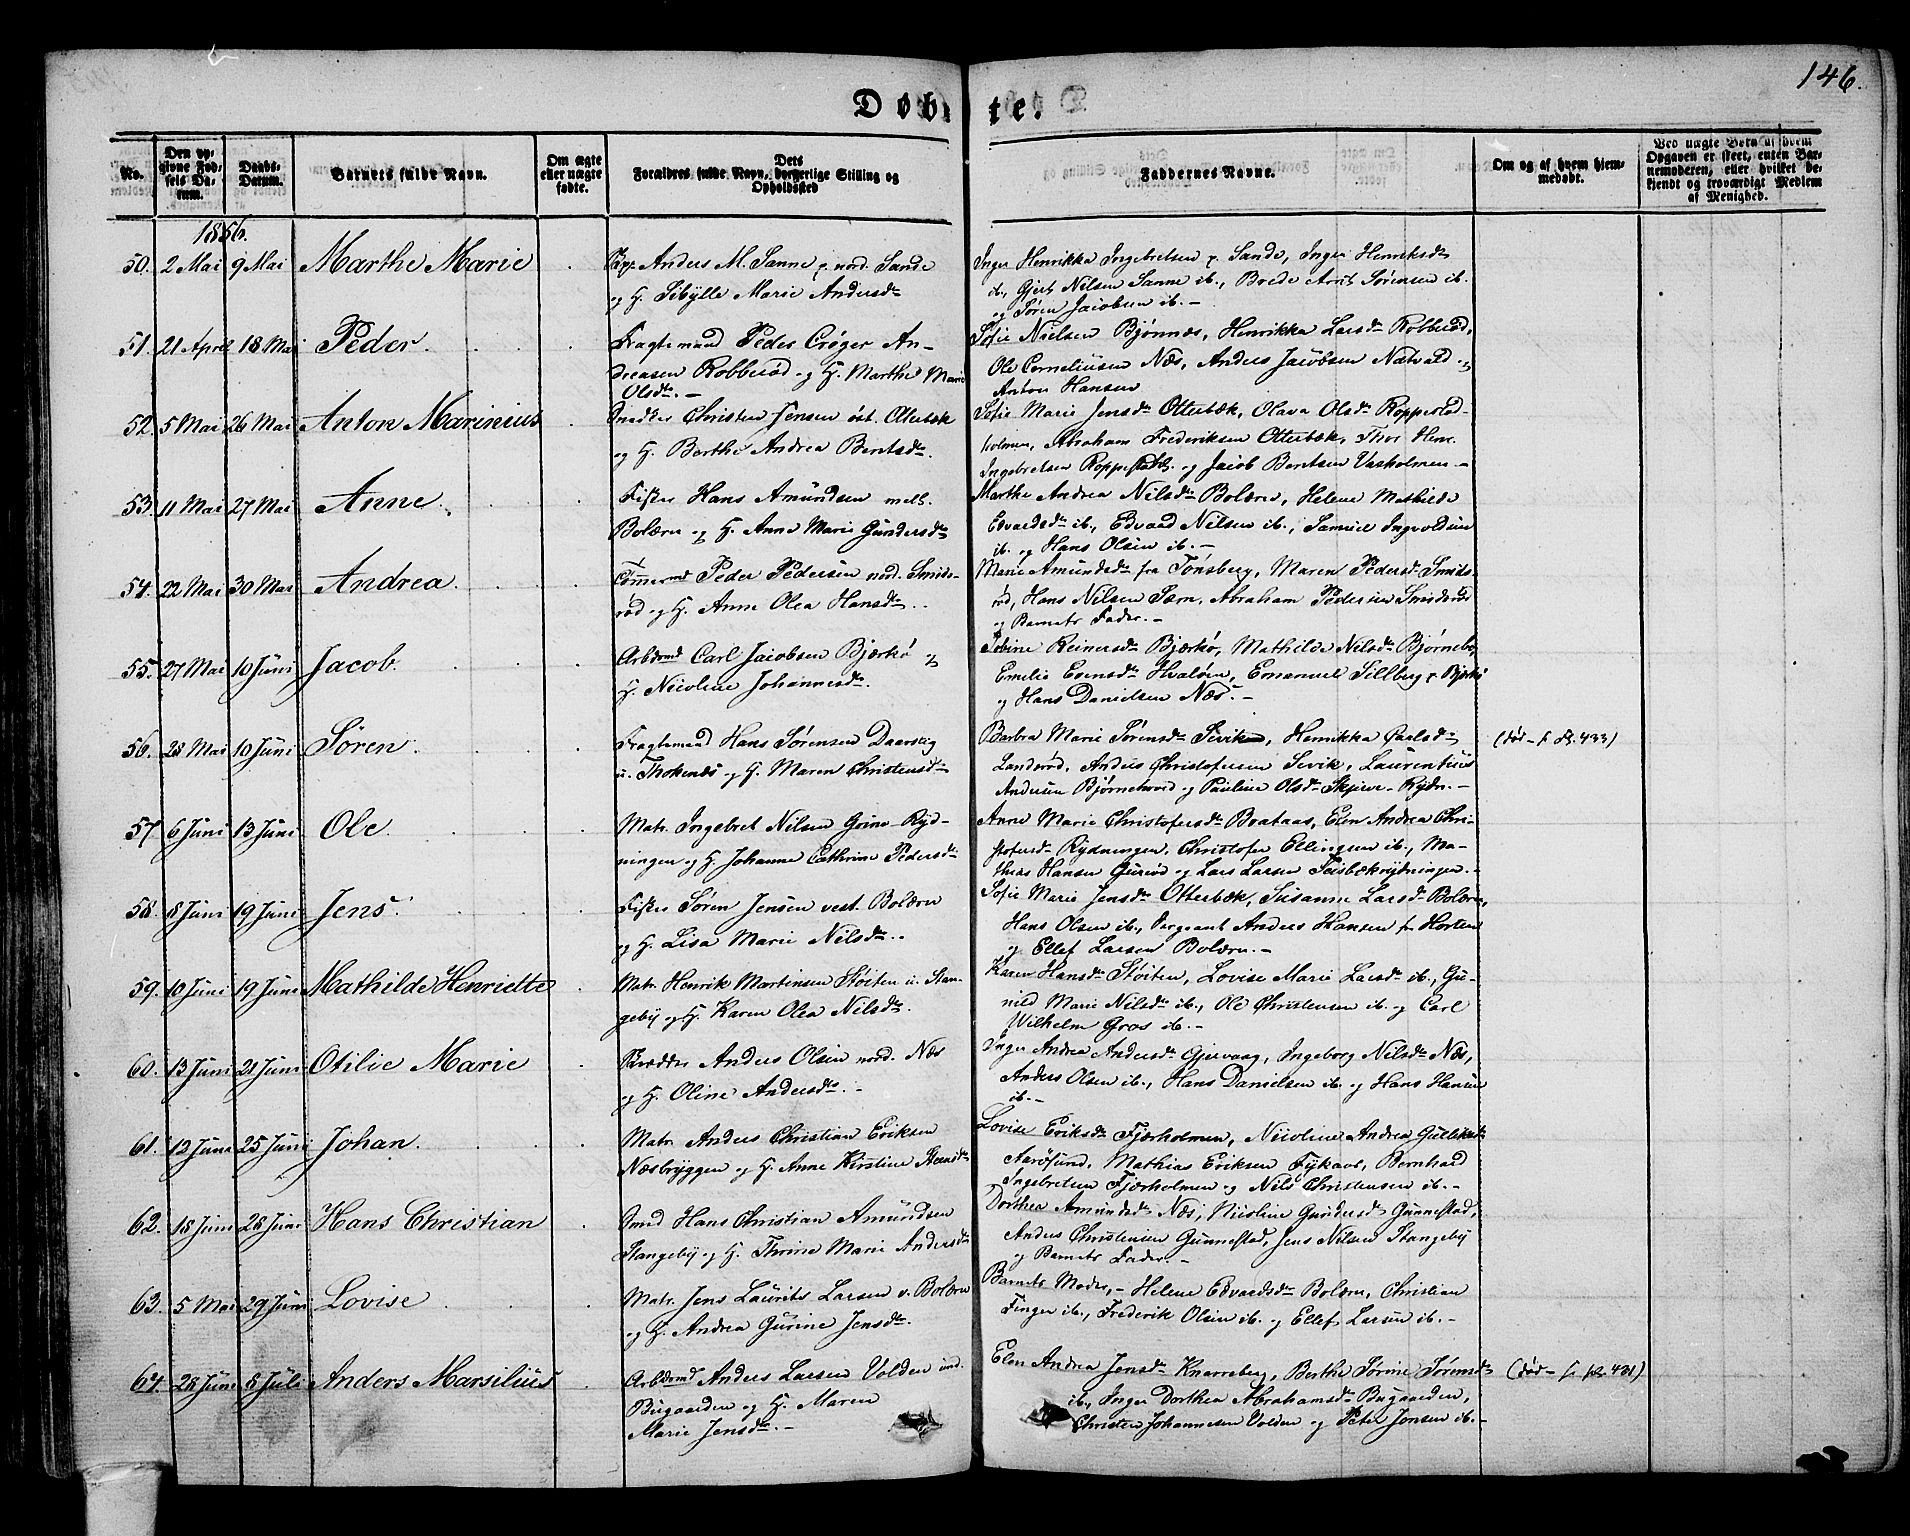 146.
Døbte.
No.
Den op-
givne Fød-
sels Da-
tum.
Daabs-
Datum.
Barnets fulde Navn.
Om ægte
eller uægte
fødte.
Dets
Forældres fulde Navn, borgerlige Stilling og
Opholdssted
Faddernes Navne.
Om og af hvem hjem-
medøbt.
Ved uægte Børn af hvem
Opgaven er skeet, enten Bar-
nemoderen, eller hvilket be-
kjendt og troværdigt Medlem
af Menighed.
1856.
50. 2 Mai 9 Mai Marthe Marie
Anders M. Sanne p. nord. Sande
og H. Sibylle Marie Andersdtr
Inger Henrikka Ingebretsen p. Sande, Inger Henriksdtr
ib., Gjert Nilsen Sanne ib., Brede Arnt Sørensen ib.
og Søren Jacobsen ib. -
51. 21 April 18 Mai Peder.
Fragtemand Peder Crøger An-
dreasen Robberød og H. Marthe Marie
Olsdtr. -
Sofie Nielsen Bjønnæs, Henrikka Larsdtr Robberød,
Ole Corneliusen Næs, Anders Jacobsen Natvald og
Anton Hansen
52. 5 Mai 26 Mai Anton Marinius
Snedker Christen Jensen øst. Otterbæk
og H. Berthe Andrea Bentsdtr.
Sofie Marie Jensdtr Otterbæk, Olava Olsdtr Roppestad-
holmen, Abraham Frederiksen Otterbæk, Thor Henr.
Ingebretsen Roppestadh. og Jacob Bentsen Vasholmen -
53. 11 Mai 27 Mai Anne.
Fisker Hans Amundsen mell.
Bolærn og H. Anne Marie Gundersdtr
Marthe Andrea Nilsdtr Bolærn, Helene Mathilde
Edvardsdtr ib., Edvard Nilsen ib., Samuel Ingvoldsen
ib. og Hans Olsen ib. -
54. 22 Mai 30 Mai Andrea.
Tømmermd Peder Pedersen nord. Smids-
rød og H. Anne Olea Hansdtr..
Marie Amundsdtr fra Tønsberg, Maren Pedersdtr Smids-
rød, Hans Nilsen Sem, Abraham Pedersen Smidsrød
og Barnets Fader. -
55. 27 Mai 10 Juni Jacob.
Arbdsmd Carl Jacobsen Bjærkø og
H. Nicoline Johannesdtr.
Tobine Reinersdtr Bjærkø, Mathilde Nilsdtr Bjørnebo,
Emelie Evensdtr Hvaløen, Emanuel Sillberg p. Bjerkø
og Hans Danielsen Næs. -
56. 28 Mai 10 Juni Søren.
Fragtemand Hans Sørensen Daarskig
u. Thokenæs og H. Maren Christensdtr
Barbra Marie Sørensdtr Seviken, Henrikka Carlsdtr
Landerød, Anders Christofersen Sevik, Laurentius
Andersen Bjørnebrød og Pauline Olsdtr Skjerve-Rydn. -
(død - f. pl. 433)
57. 6 Juni 13 Juni Ole
Matr. Ingebret Nilsen Grine-Ryd-
ningen og H. Johanne Cathrine Pedersdtr
Anne Marie Christofersdtr Brataas, Elen Andrea Chri-
stofersdtr Rydningen, Christofer Ellingsen ib., Ma-
thias Hansen Gurød og Lars Larsen Feisbækrydningen. -
58. 8 Juni 19 Juni Jens.
Fisker Søren Jensen vest. Bolærn
og H. Lisa Marie Nilsdtr..
Sofie Marie Jensdtr Otterbæk, Susanne Larsdtr Bolærn,
Hans Olsen ib., Sergeant Anders Hansen fr. Horten
og Ellef Larsen Bolærn. -
59. 10 Juni 19 Juni Mathilde Henriette
Matr. Henrik Martinsen Støiten u. Stan-
geby og H. Karen Olea Nilsdtr.
Karen Hansdtr Støiten, Lovise Marie Larsdtr ib., Gu-
nild Marie Nilsdtr ib., Ole Christensen ib. og Carl
Wilhelm Gros ib. -
60. 13 Juni 21 Juni Otilie Marie
Skrædder Anders Olsen nord. Næs
og H. Oline Andersdtr. -
Inger Andrea Andersdtr Gjervaag, Ingeborg Nilsdtr Næs,
Anders Olsen ib., Hans Danielsen ib. og Hans Hansen
ib. -
61. 12 Juni 25 Juni Johan.
Matr. Anders Christian Eriksen
Næsbryggen og H. Anne Kirstine Steensdtr
Lovise Eriksdtr Fjærholmen, Nicoline Andrea Gulliksdtr
Aarøsund, Mathias Eriksen Fykaas, Bernhard
Ingebretsen Fjærholmen og Nils Christensen ib. -
62. 18 Juni 28 Juni Hans Christian
Smed Hans Christian Amundsen
Stangeby og H. Thrine Marie Andersdtr
Dorthea Amundsdtr Næs, Nicoline Gundersdtr Gunnestad,
Anders Christensen Gunnestad, Jens Nilsen Stangeby
og Barnets Fader. -
63. 5 Mai 29 Juni Lovise
Matr. Jens Laurits Larsen v. Bolærn
og H. Andrea Gurine Jensdtr.
Barnets Moder, - Helene Edvardsdtr Bolærn, Christian
Finger ib., Frederik Olsen ib. og Ellef Larsen ib. -
64. 28 Juni 8 Juli Anders Marsilius
Arbdsmd Anders Larsen Volden und.
Bugaarden og H. Maren
Marie Jensdtr. -
Elen Andrea Jensdtr Knarreberg, Berthe Sørine Sørensdtr
ib., Inger Dorthea Abrahamsdtr Bugaarden,
Christen Johannesen Volden og Peter Jensen ib. -
(død - f. pl. 431)